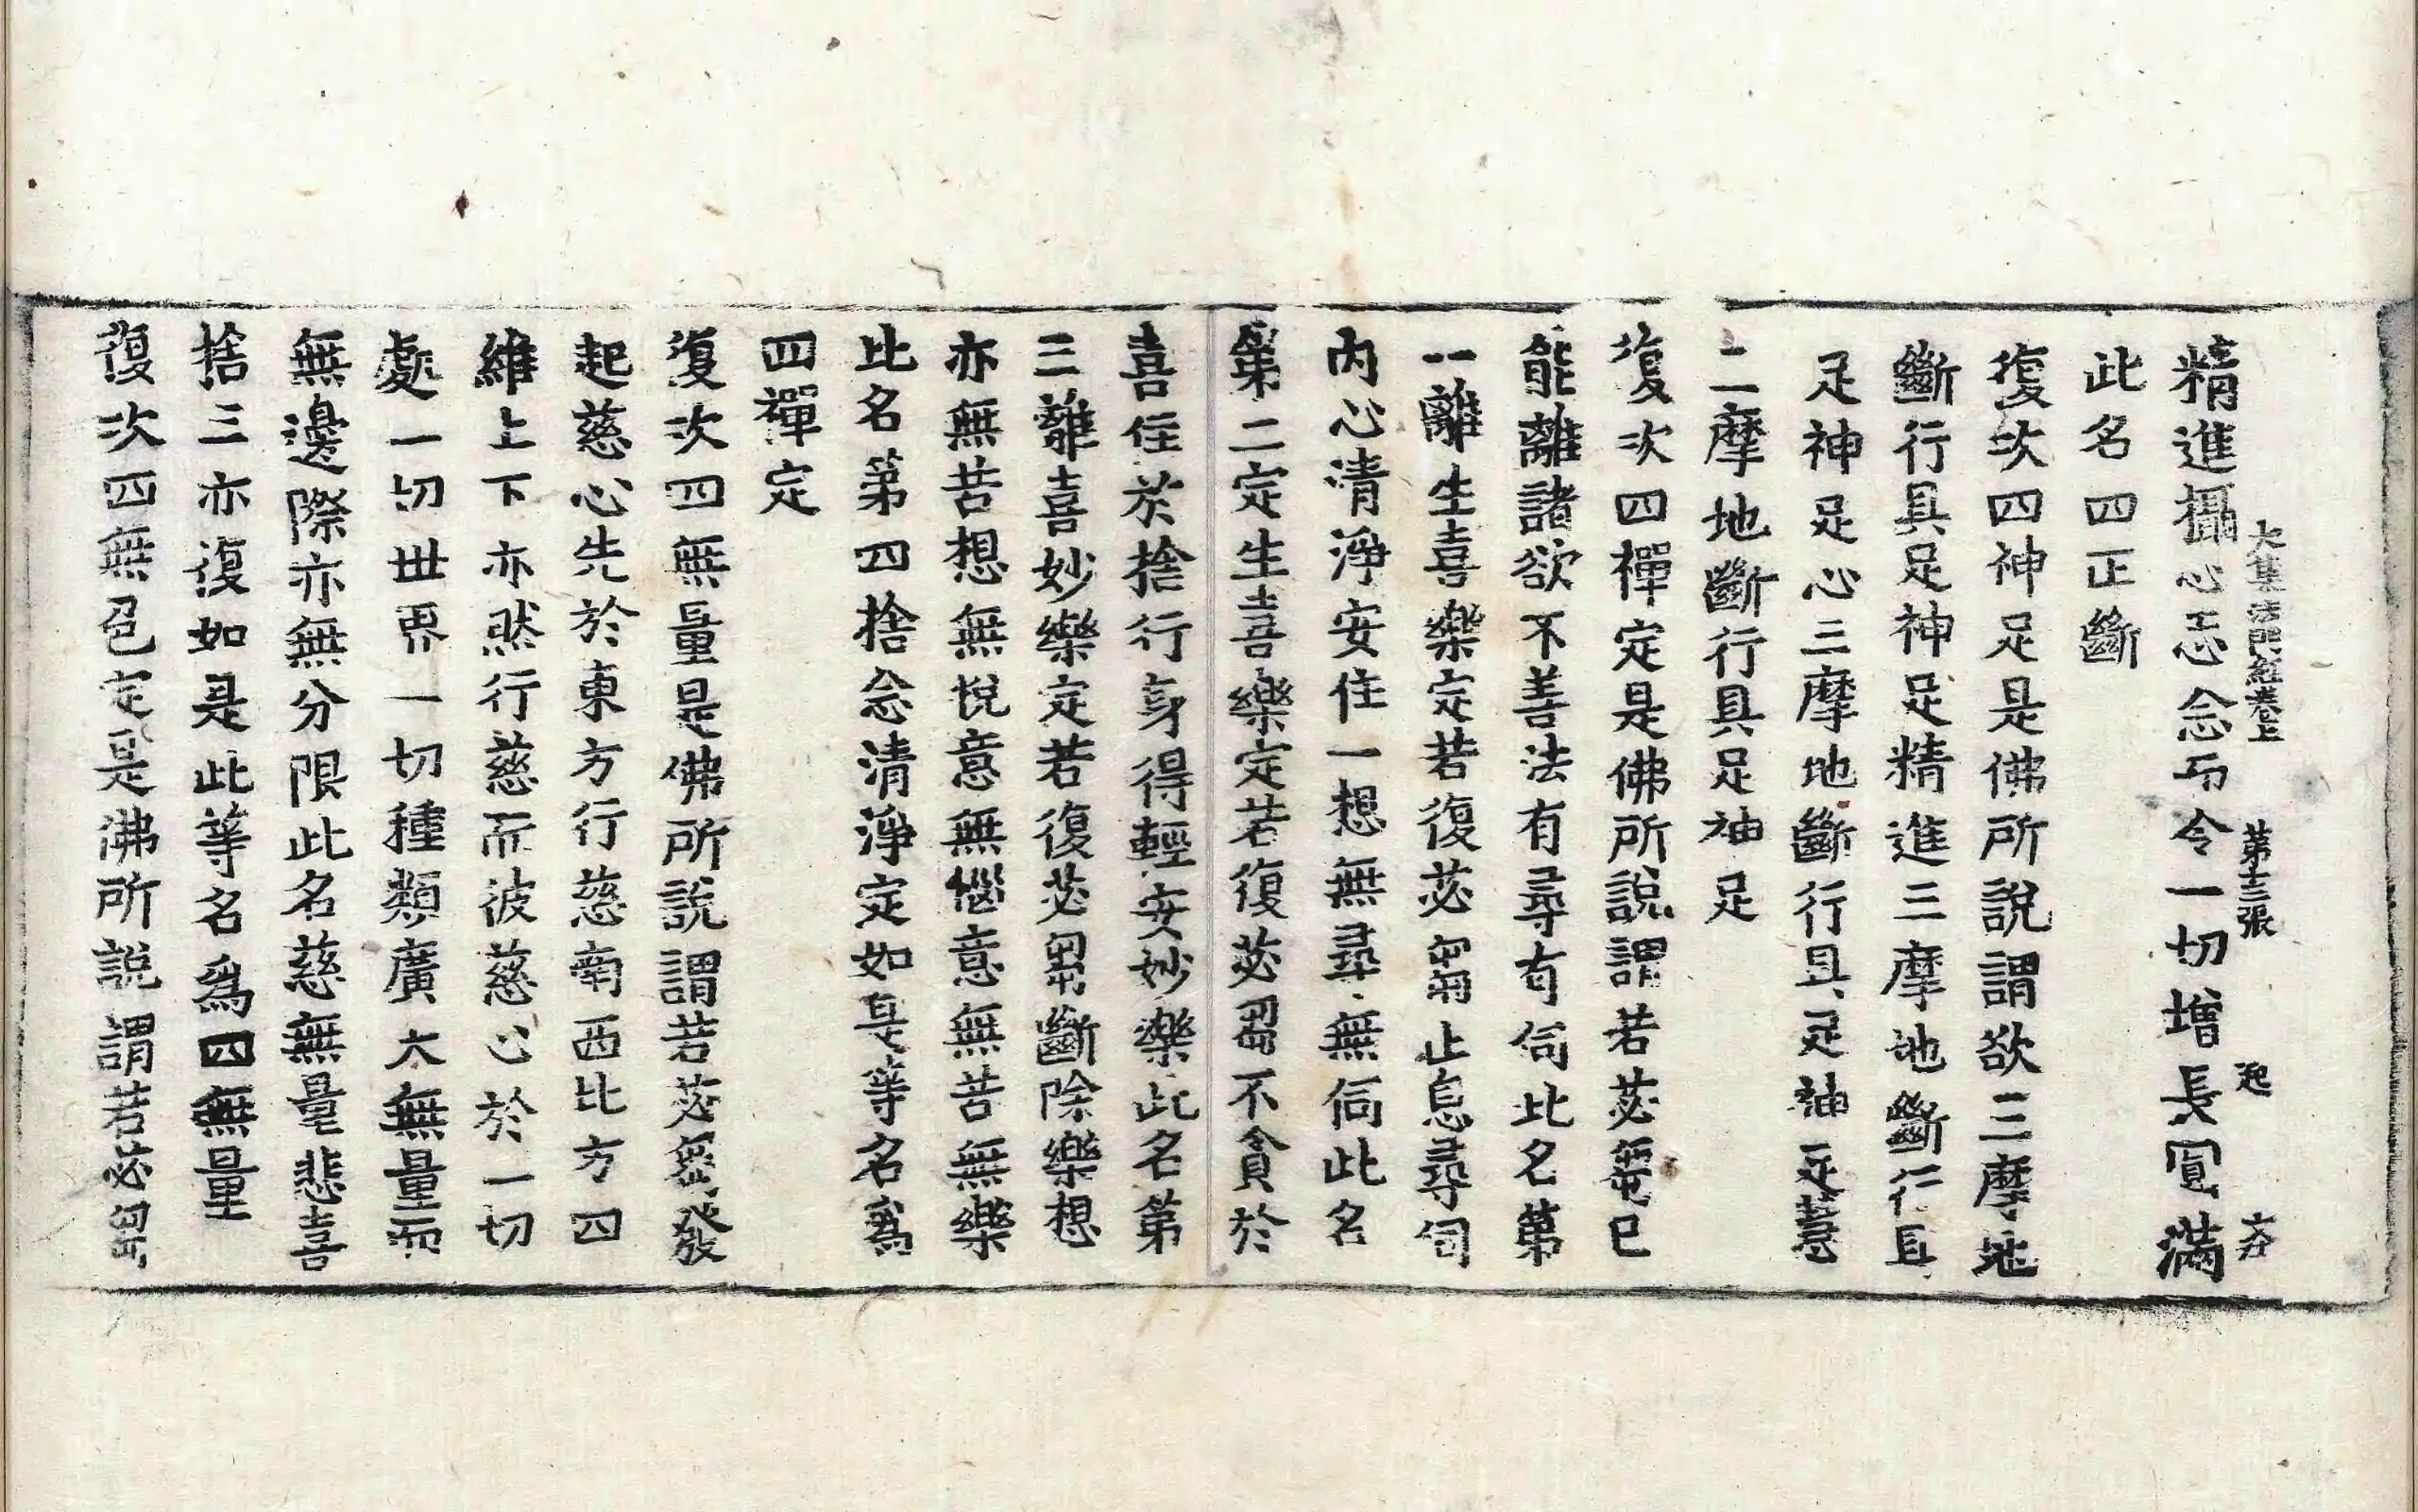 大集法門經卷上　第十三張　起　大
精進攝心正念乃令一切增長圓滿
此名四正斷
復次四神足是佛所說謂欲三摩地
斷行具足神足精進三摩地斷行具
足神足心三摩地斷行具足神足慧
三摩地斷行具足神足
復次四禪定是佛所說謂若苾芻已
能離諸欲不善法有尋有伺此名第
一離生喜樂定若復苾芻止息尋伺
內心清淨安住一想無尋無伺此名
第二定生喜樂定若復苾芻不貪於
喜住於捨行身得輕安妙樂此名第
三離喜妙樂定若復苾芻斷除樂想
亦無苦想無悅意無惱意無苦無樂
此名第四捨念清淨定如是等名爲
四禪定
復次四無量是佛所說謂若苾芻發
起慈心先於東方行慈南西北方四
維上下亦然行慈而彼慈心於一切
處一切世界一切種類廣大無量而
無邊際亦無分限此名慈無量悲喜
捨三亦復如是此等名爲四無量
復次四無色定是佛所說謂若苾芻